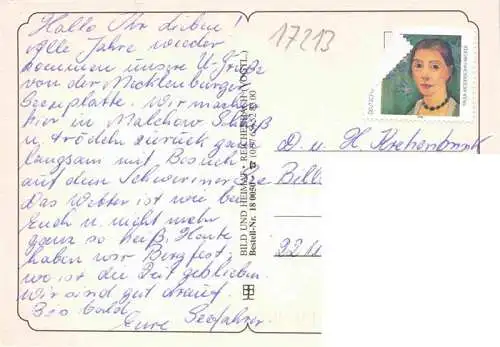 Hallo Ihr Lieben!
Alle Jahre wieder
kommen unsere U-Grüße
von der Mecklenburger
Seenplatte. Wir machen
hier in Malchow Schluß
u. trödeln zurück ganz
langsam mit Besuch
auf dem Schweriner See
Das Wetter ist wie bei
Euch u. nicht mehr
ganz so heiß. Heute
haben wir Bergfest,
wo ist die Zeit geblieben.
Wir sind gut drauf.
Bis bald
Eure Seefahrer.
BILD UND HEIMAT • REICHENBACH (VOGTL.)
Bestell-Nr. 18 0050
17213
PAULA MODERSOHN-BECKER
D. u. H. Krehenbrink
Bell
2211